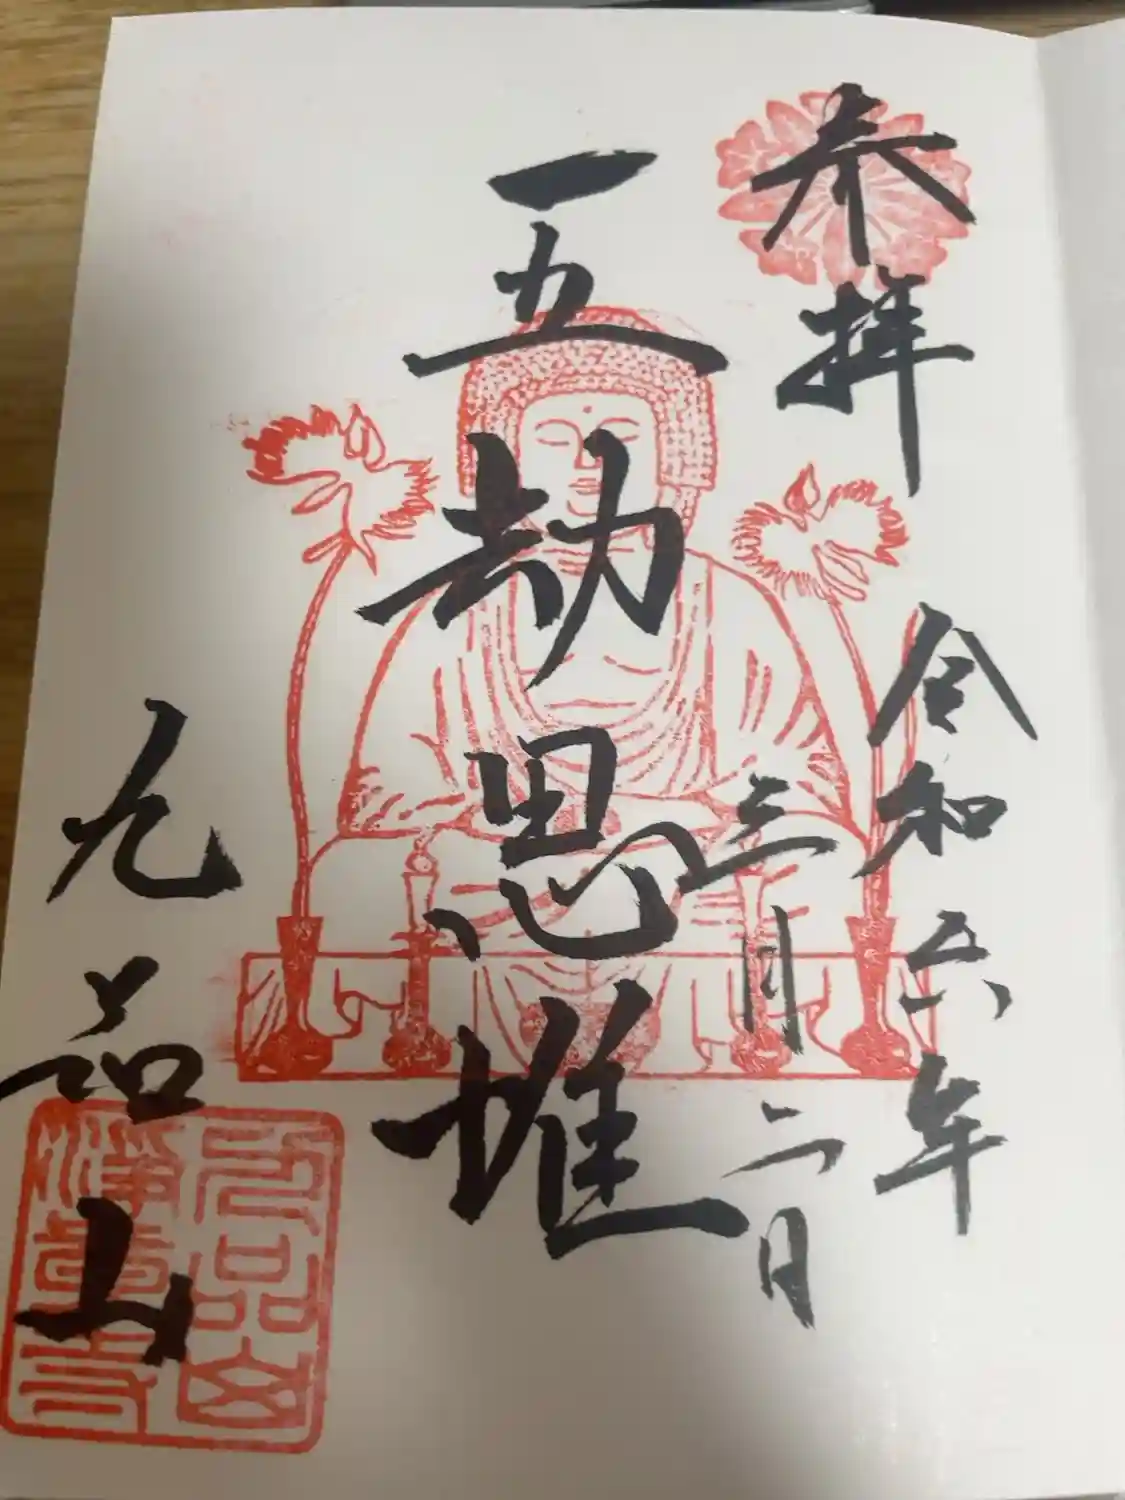 参拝
令和六年
三月二日
五劫思惟
九品山
九品山
淨眞寺